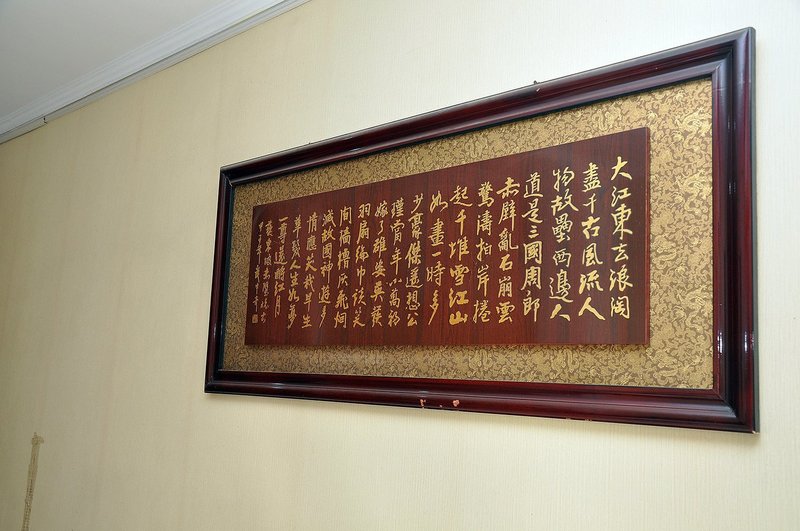 大江東去浪淘
盡千古風流人
物故壘西邊人
道是三國周郎
赤壁亂石崩雲
驚濤拍岸捲
起千堆雪江山
如畫一時多
少豪傑遥想公
瑾當年小喬初
嫁了雄姿英發
羽扇綸巾談笑
間檣櫓灰飛烟
滅故國神遊多
情應笑我早生
華髮人生如夢
一尊還酹江月
東坡赤壁懷古